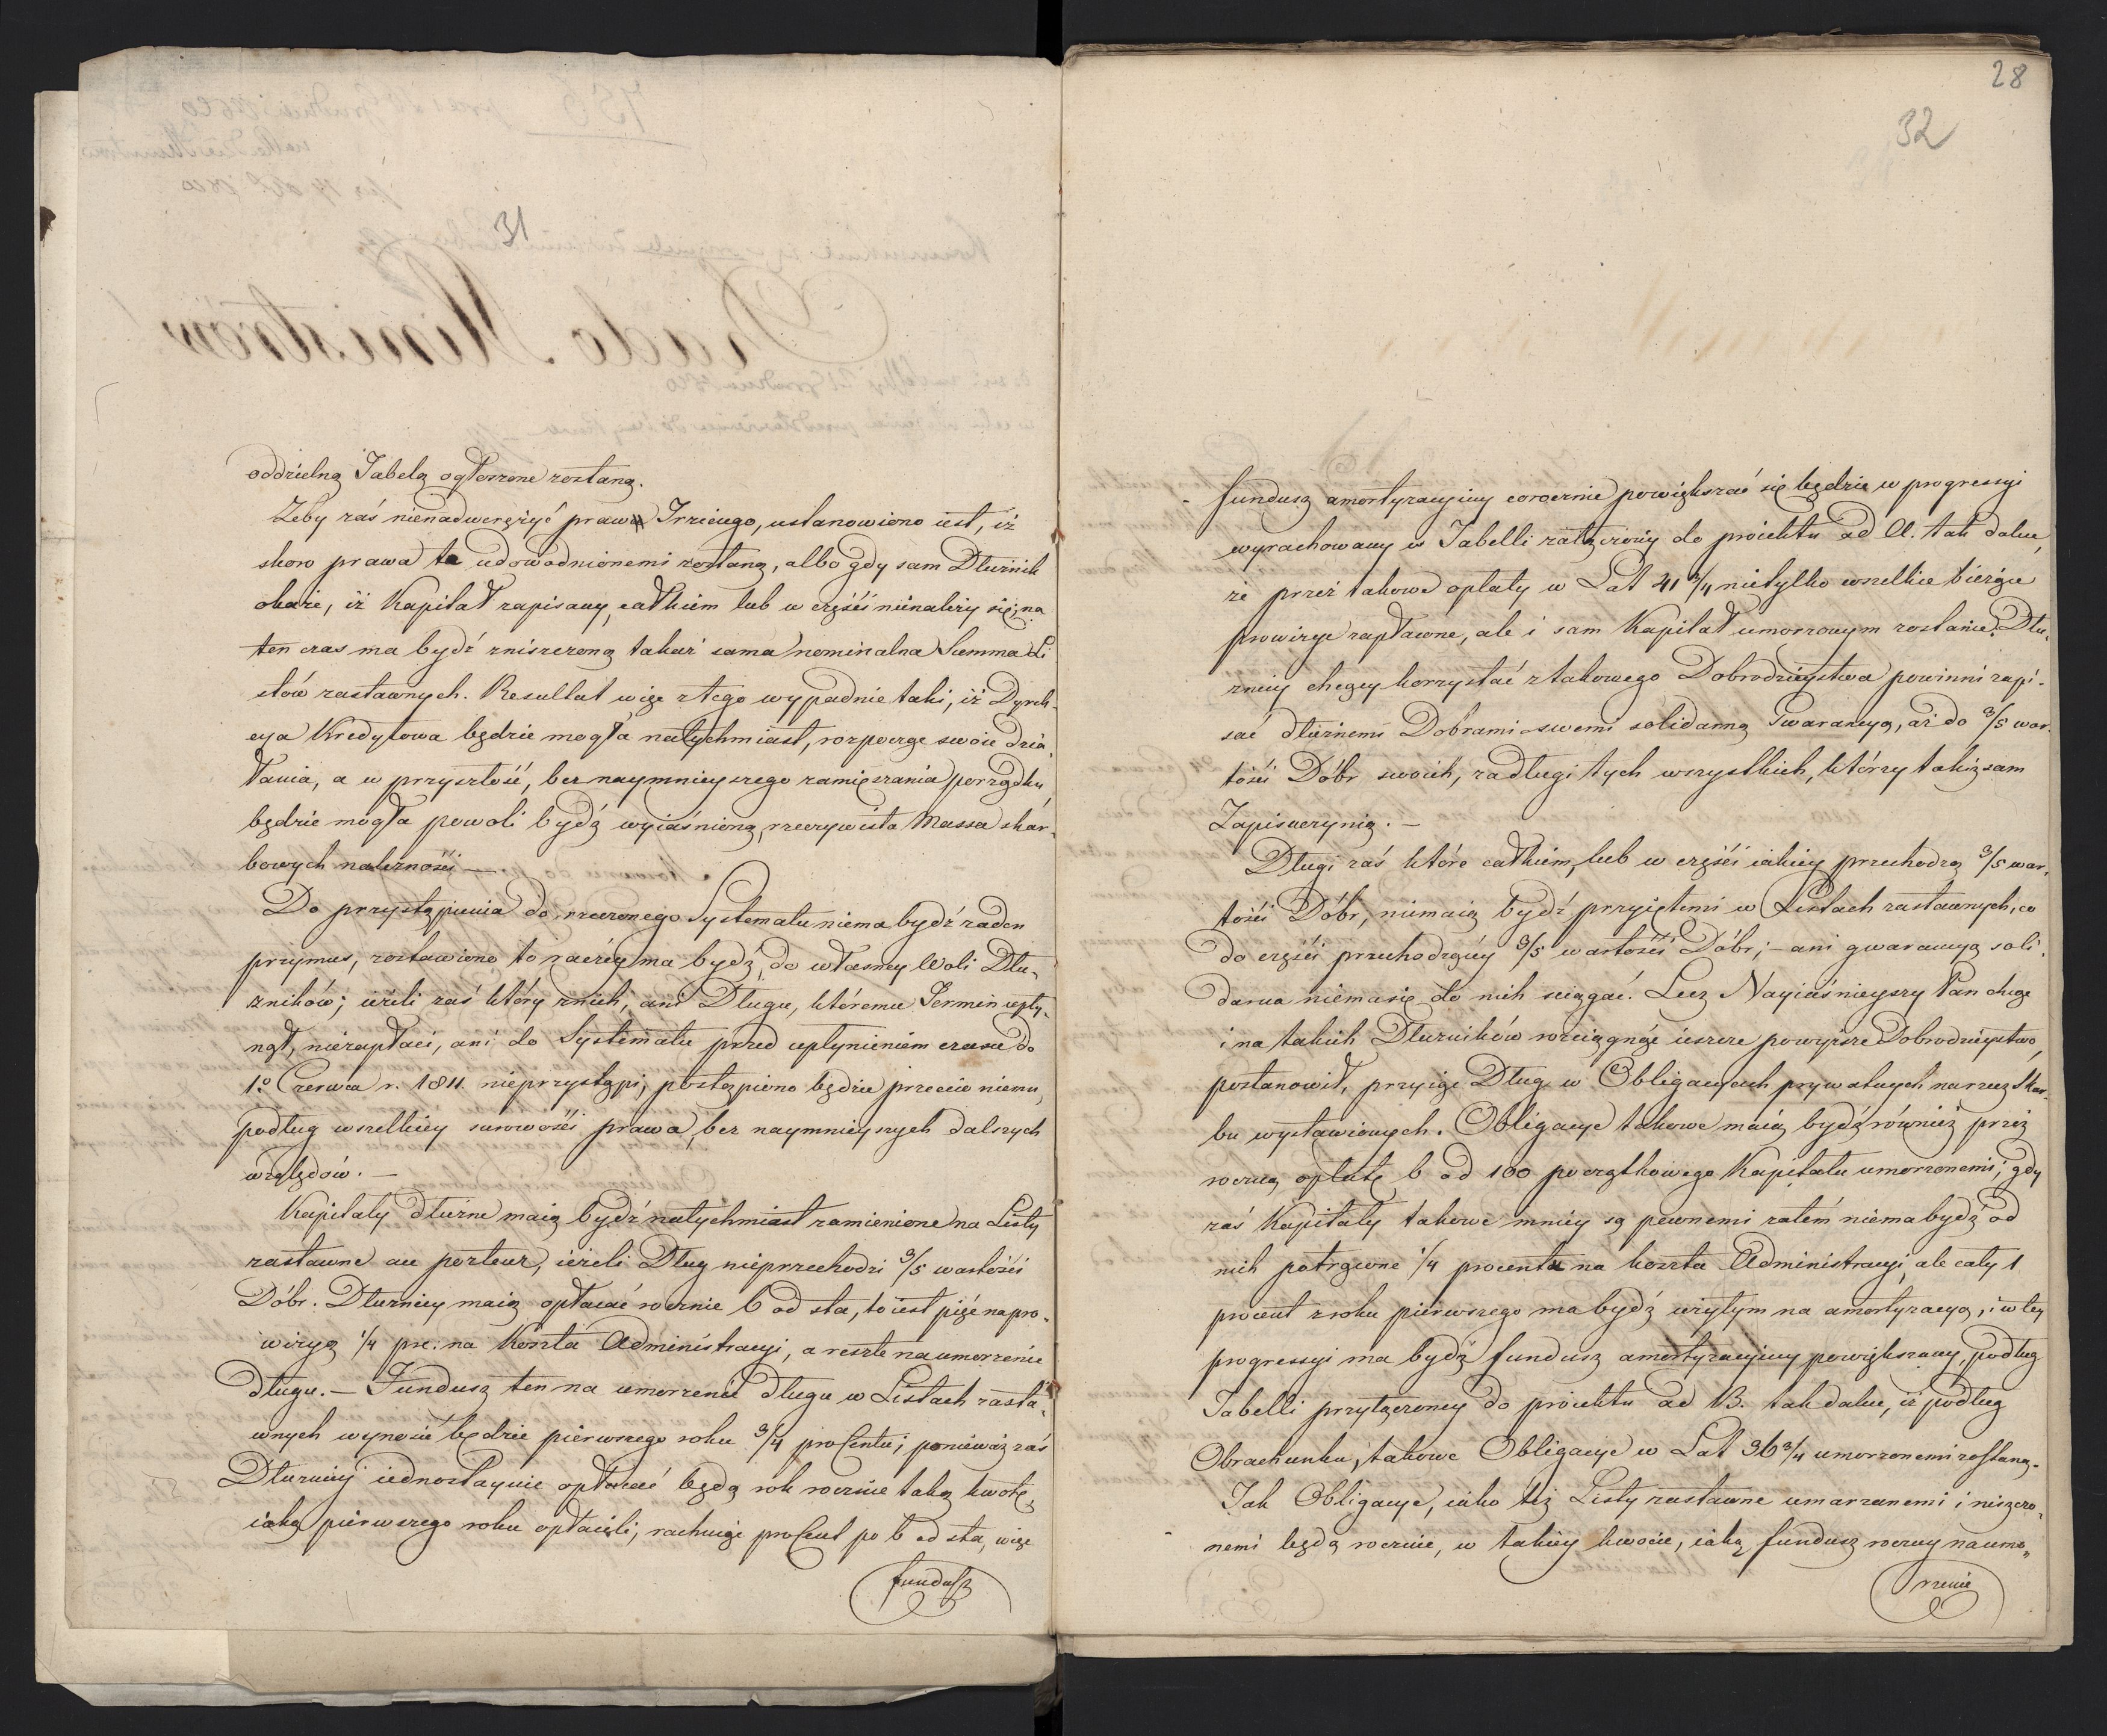 31
oddzielną Tabelą ogłoszone zostaną.
Żeby zaś nienadweręzyć prawa Trzeciego, ustanowiono iest, iż
skoro prawa te udowodnionemi zostaną, albo gdy sam Dłuznik
okaże, iż Kapitał zapisany, całkiem lub w części nienależy się, na
ten czas ma bydź zniszczoną takaż sama nominalna Summa Li
stów zastawnych. Resultat więc z tego wypadnie taki, iż Dyrek-
cya Kredytowa będzie mogła natychmiast, rozpocząć swoie dzia
łania, a w przyszłość, bez naymnieyszego zamięszania porządku,
będzie mogła powoli bydź wyiaśnioną, rzeczywista Massa skar-
bowych należności —
Do przystąpienia do rzeczonego Systematu niema bydź żaden
przymus, zostawiono to raczey ma bydź, do własney Woli Dłu-
zników; ieżeli zaś który z nich, ani Długu, któremu Termin upły-
nął, niezapłaci, ani do Systematu przed upłynieniem czasu do
1º Czerwca r. 1811. nieprzystąpi; postąpiono będzie przeciw niemu,
podług wszelkiey surowości prawa, bez naymnieyszych dalszych
względów. —
Kapitały dłużne maią bydź natychmiast zamienione na Listy
zastawne au porteur, ieżeli Dług nieprzechodzi 3/5 wartości
Dóbr. Dłuznicy maią opłacać rocznie 6 od sta, to iest pięć na pro-
wizyą 1/4 prc: na Koszta Administracyi, a resztę na umorzenie
długu. — Fundusz ten na umorzenie długu w Listach zasta-
wnych wynosić będzie pierwszego roku 3/4 procentu; ponieważ zaś
Dłuznicy iednostaynie opłacać będą rok rocznie taką kwotę,
iaką pierwszego roku opłacili, rachuiąc procent po 6 od sta, więc
fundusz
28
32
fundusz amortyzacyiny corocznie powiększać się będzie w progressyi
wyrachowany w Tabelli załączoney do proiektu ad A. tak dalece,
że przez takowe opłaty w Lat 41 3/4 nietylko wszelkie bieżące
prowizye zapłacone, ale i sam Kapitał umorzonym zostanie. Dłu-
znicy chcący korzystać z takowego Dobrodzieystwa powinni zapi-
sać dłużnemi Dobrami swemi solidarną Gwarancyą, aż do 3/5 war-
tości Dóbr swoich, za długi tych wszystkich, którzy takiż sam
Zapis uczynią. —
Długi zaś które całkiem, lub w części iakiey przechodzą 3/5 war-
tości Dóbr, niemaią bydź przyiętemi w Listach zastawnych, co
do części przechodzącey 3/5 wartości Dóbr; — ani gwarancya soli-
darna niema się do nich sciągać. Lecz Nayiaśnieyszy Pan chcąc
i na takich Dłuzników rozciągnąć ieszcze powyższe Dobrodzieystwo,
postanowił, przyiąć Dług w Obligacyach prywatnych na rzecz Skar-
bu wystawionych. Obligacye takowe maią bydź również przez
roczną opłatę 6 od 100 początkowego Kapitału umorzonemi; gdy
zaś Kapitały takowe mniey są pewnemi zatem niema bydź od
nich potrącone 1/4 procentu na koszta Administracyi, ale cały 1
procent z roku pierwszego ma bydź użytym na amortyzacyą, i w tey
progressyi ma bydź fundusz amortyzacyiny powiększany, podług
Tabelli przyłączoney do proiektu ad B. tak dalece, iż podług
Obrachunku, takowe Obligacye w Lat 36 3/4 umorzonemi zostaną.
Jak Obligacye, iako też Listy zastawne umarzanemi i niszczo-
nemi będą rocznie, w takiey kwocie, iaką fundusz roczny na umo-
rzenie